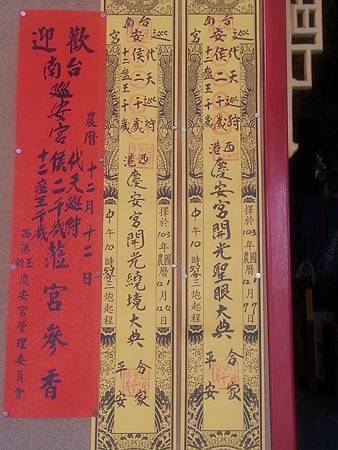 歡
迎
台
南
巡安宮
代天巡狩
侯二千歲
十二瘟王千歲
蒞宮參香
農曆 十二月十二日
西港
慶安宮管理委員會
台南
巡安宮
代天巡狩
侯二千歲
十二瘟王千歲
西港
慶安宮開光聖眼大典
擇於103年
國曆
農曆
中午10時
三炮起程
合家
平安
台南
安宮
代天巡狩
侯二千歲
十二瘟王千歲
西港
慶安宮開光繞境大典
擇於103年
農曆12月12日
中午10時
三炮起程
合家
平安